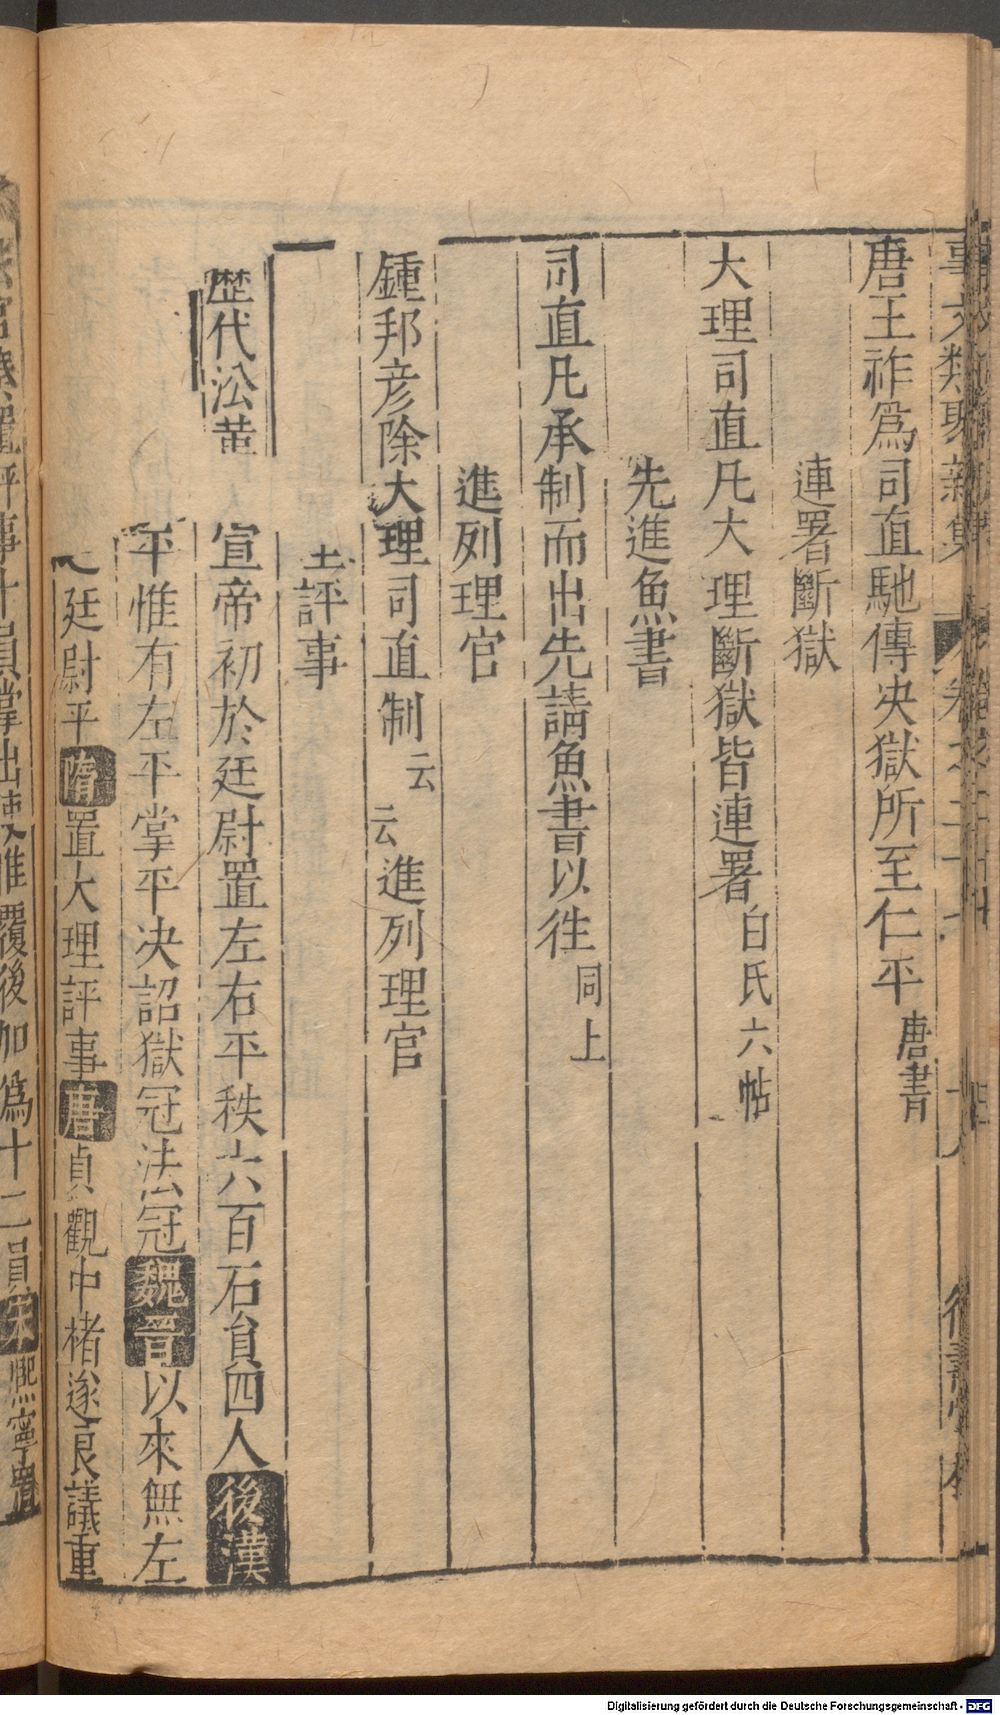 唐王祚爲司直馳傳決獄所至仁平唐書
連署斷獄
大理司直凡大理斷獄皆連署白氏六帖
先進魚書
司直凡承制而出先請魚書以徃同上
進列理官
鍾邦彦除大理司直制云云進列理官
評事
歴代㳂革
宣帝初於廷尉置左右平秩六百石員四人後漢
平惟有左平掌平决詔獄冠法冠魏晉以來無左
廷尉平隋置大理評事唐貞觀中褚遂良議重
評事十員掌出使推覆後加爲十二員宋熈寧置
Digitalisierung gefördert durch die Deutsche Forschungsgemeinschaft - DFG